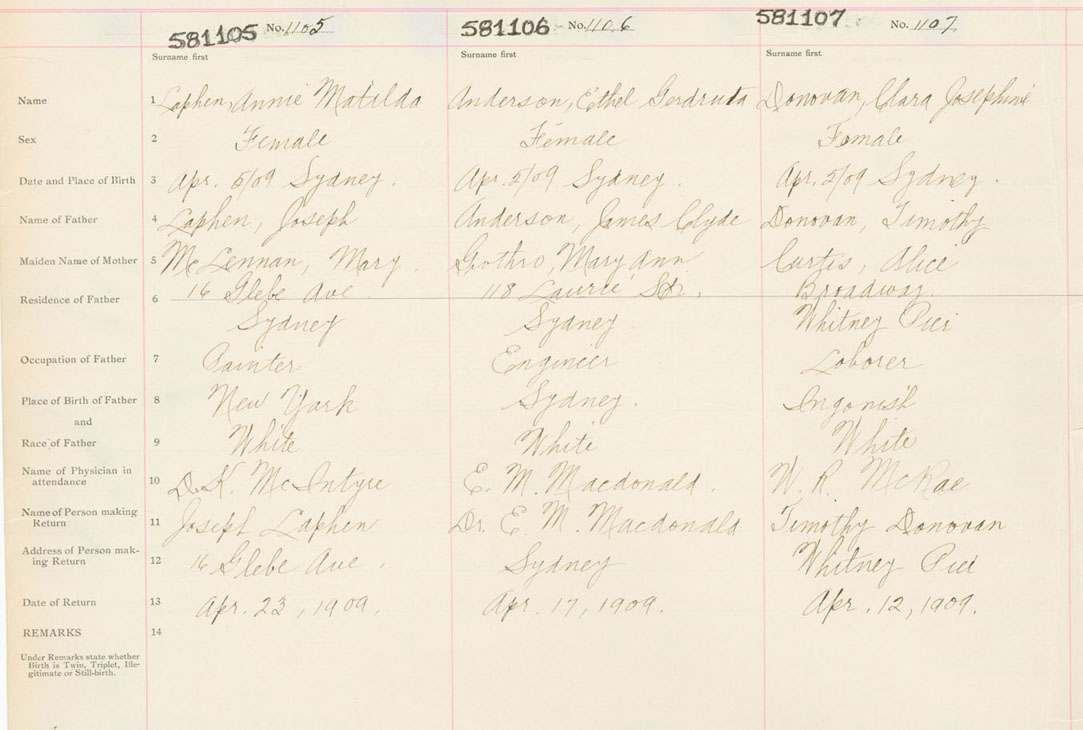 581105 No. 1105 581106 No. 1106 581107 No. 1107
Surname first Surname first Surname first
Name 1 Laphen, Annie Matilda Anderson, Ethel Gerdruta Donovan, Clara Josephine
Sex 2 Female Female Female
Date and Place of Birth 3 Apr. 5/09 Sydney. Apr. 2/09 Sydney. Apr. 2/09 Sydney.
Name of Father 4 Laphen, Joseph Anderson, James Clyde Donovan, Timothy
Maiden Name of Mother 5 McLennan, Mary. Gothro, Mary Ann Curtis, Alice
Residence of Father 6 16 Glebe Ave 118 Laurie Str. Broadway.
Sydney Sydney Whitney Pier
Occupation of Father 7 Painter Engineer Laborer
Place of Birth of Father 8 New York Sydney. Ingonish
and
Race of Father 9 White White White
Name of Physician in
attendance 10 D.K. McIntyre E. M. Macdonald. W. R. McRae
Name of Person making
Return 11 Joseph Laphen Dr. E. M. Macdonald Timothy Donovan
Address of Person mak-
ing Return 12 16 Glebe Ave, Sydney Whitney Pier
Date of Return 13 Apr. 23, 1909. Apr. 17, 1909. Apr. 12, 1909.
REMARKS 14
Under Remarks state whether
Birth is Twin, Triplet, Ille-
gitimate or Still-birth.